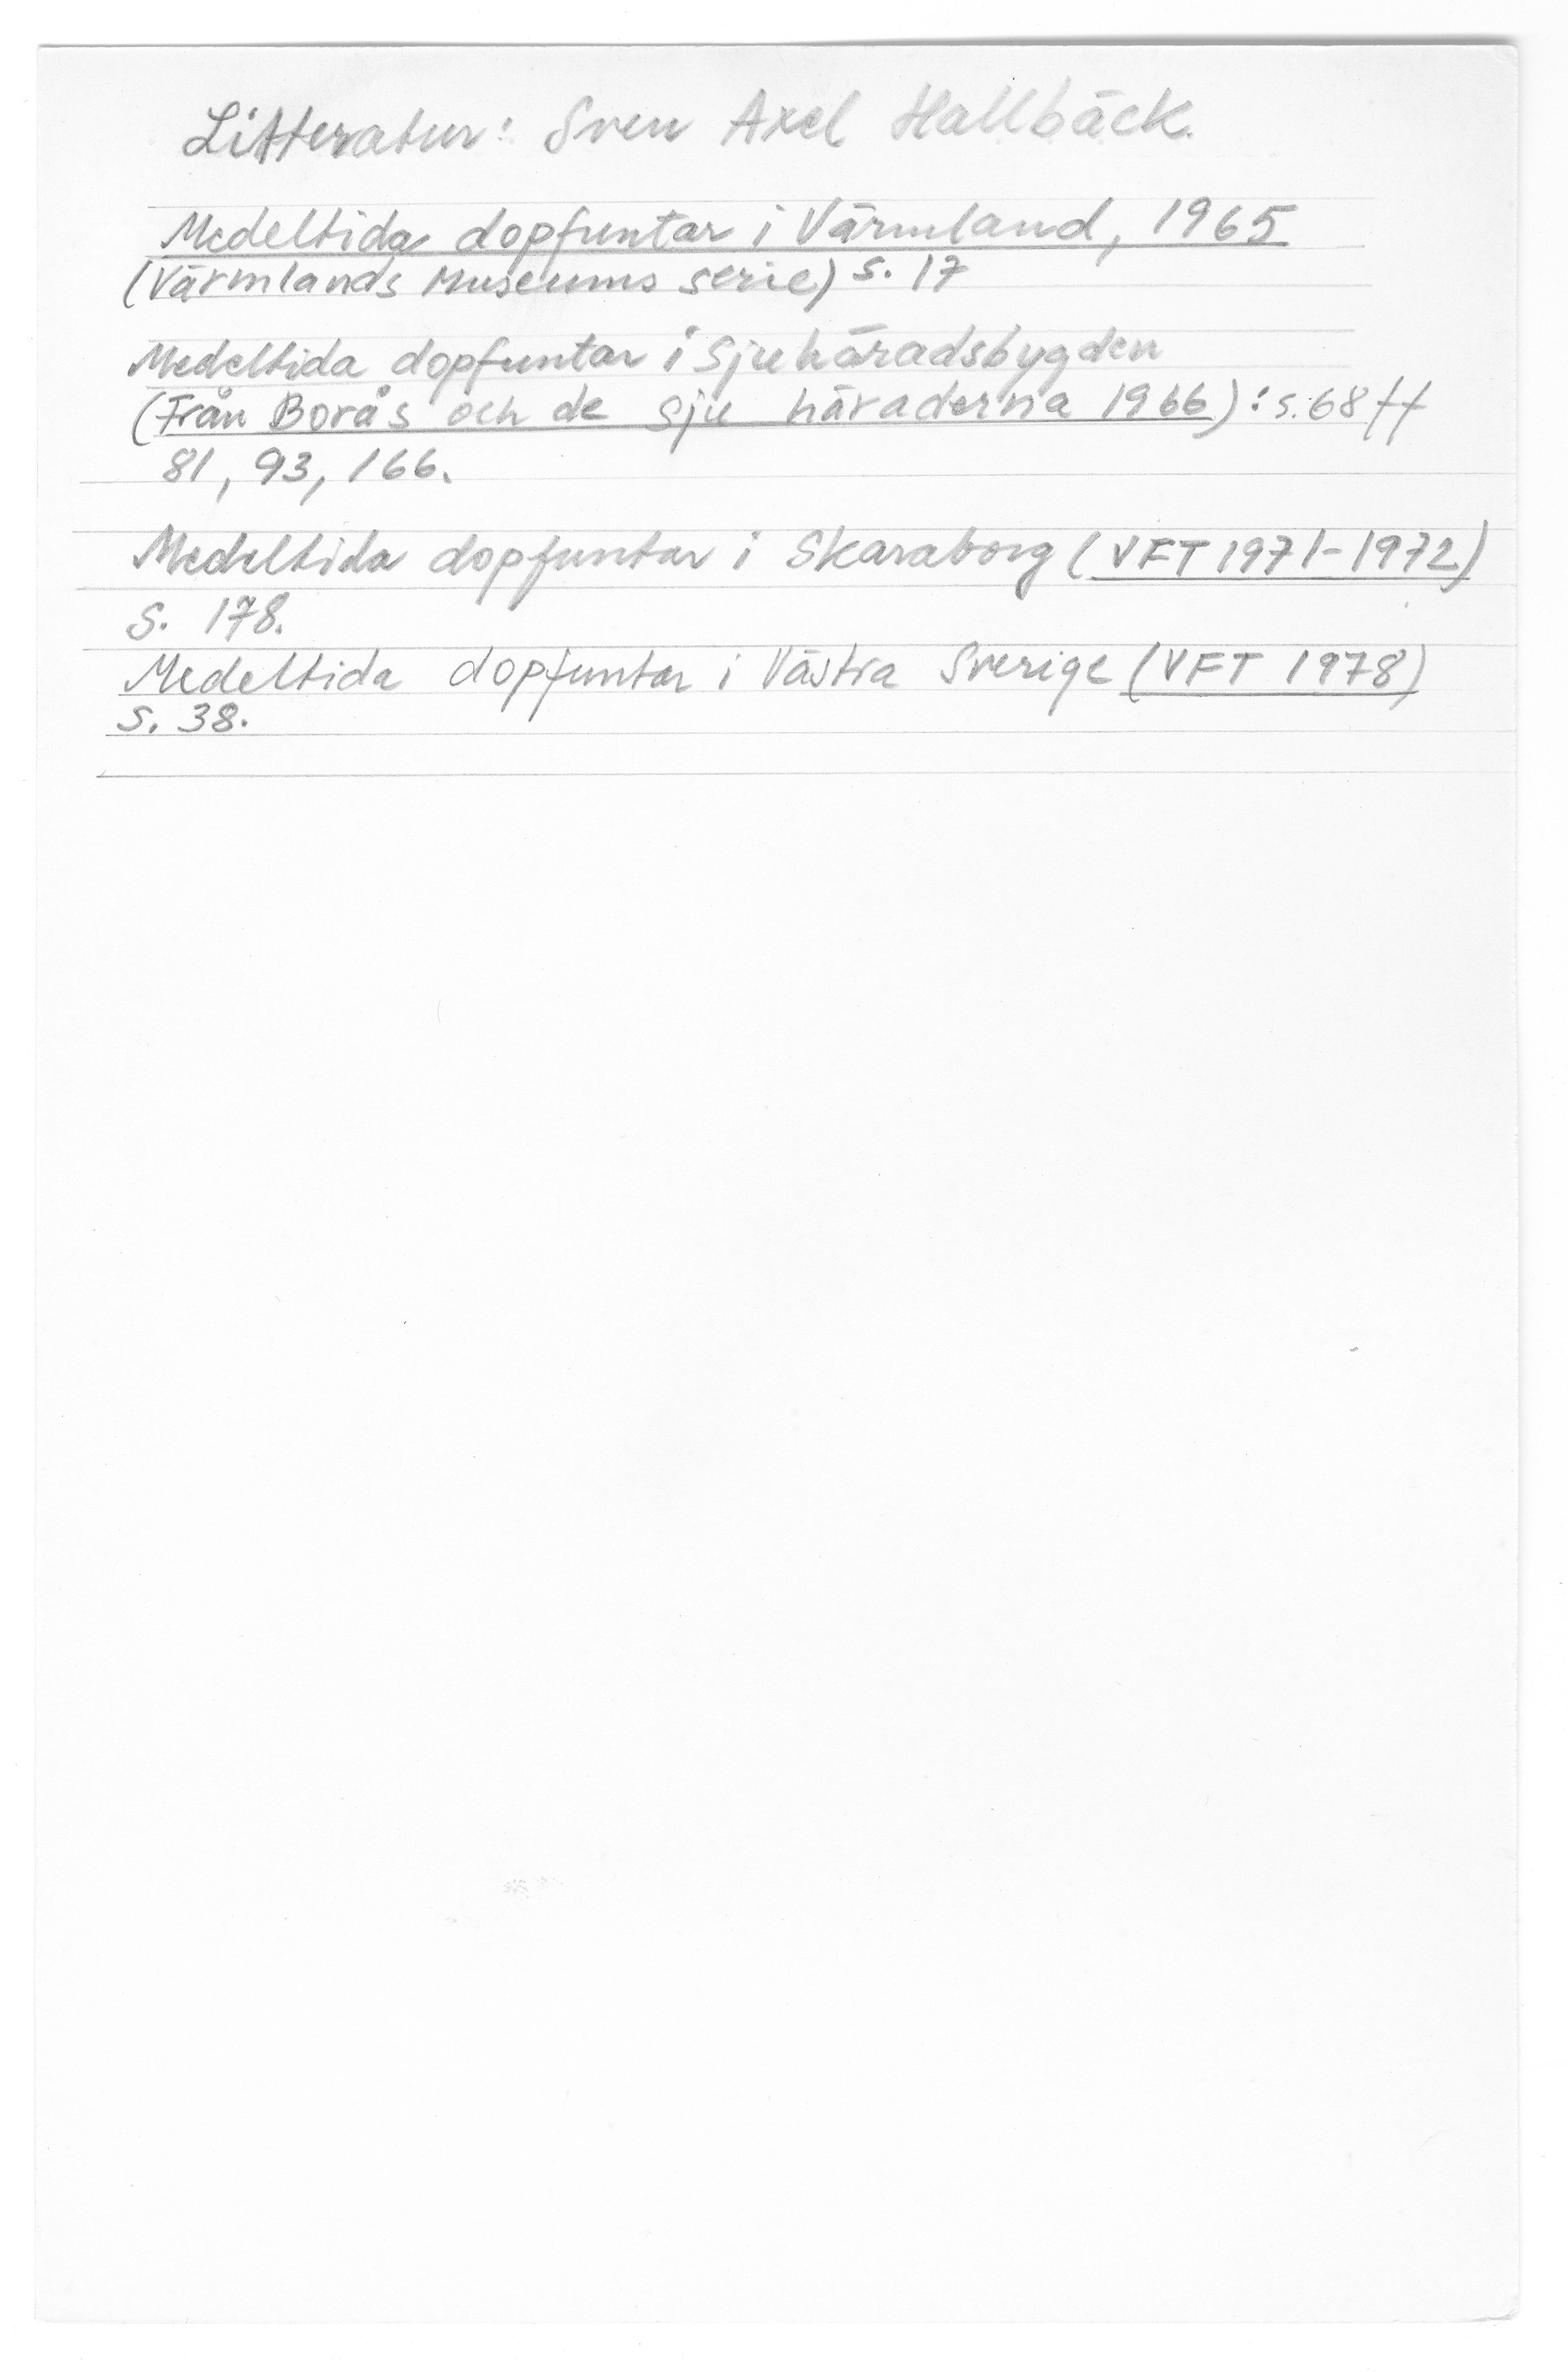 Litteratur: Sven Axel Hallbäck.
Medeltida dopfuntar i Värmland, 1965
(Värmlands Museums serie) s. 17
Medeltida dopfuntar i Sjuhäradsbygden
(Från Borås och de sju häraderna 1966): s. 68 ff
81, 93, 166.
Medeltida dopfuntar i Skaraborg (VFT 1971-1972)
S. 178.
Medeltida dopfuntar i Västra Sverige (VFT 1978)
S. 38.